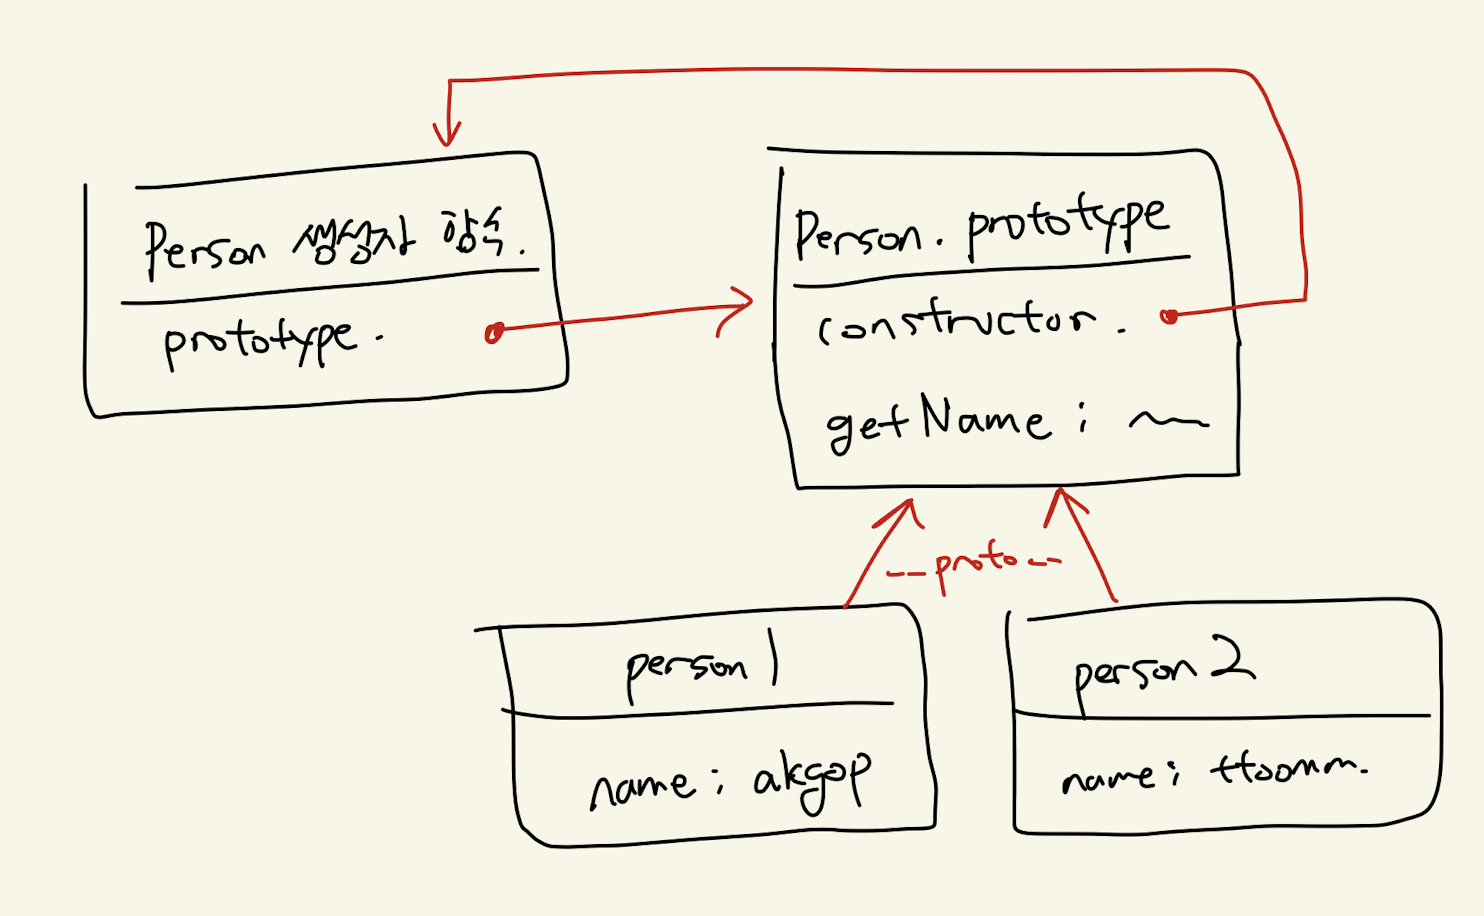 Person 생성자 함수.
prototype.
Person. prototype
constructor.
getName :
--proto--
person 1
name : akgop
person 2
name : ttoomm.